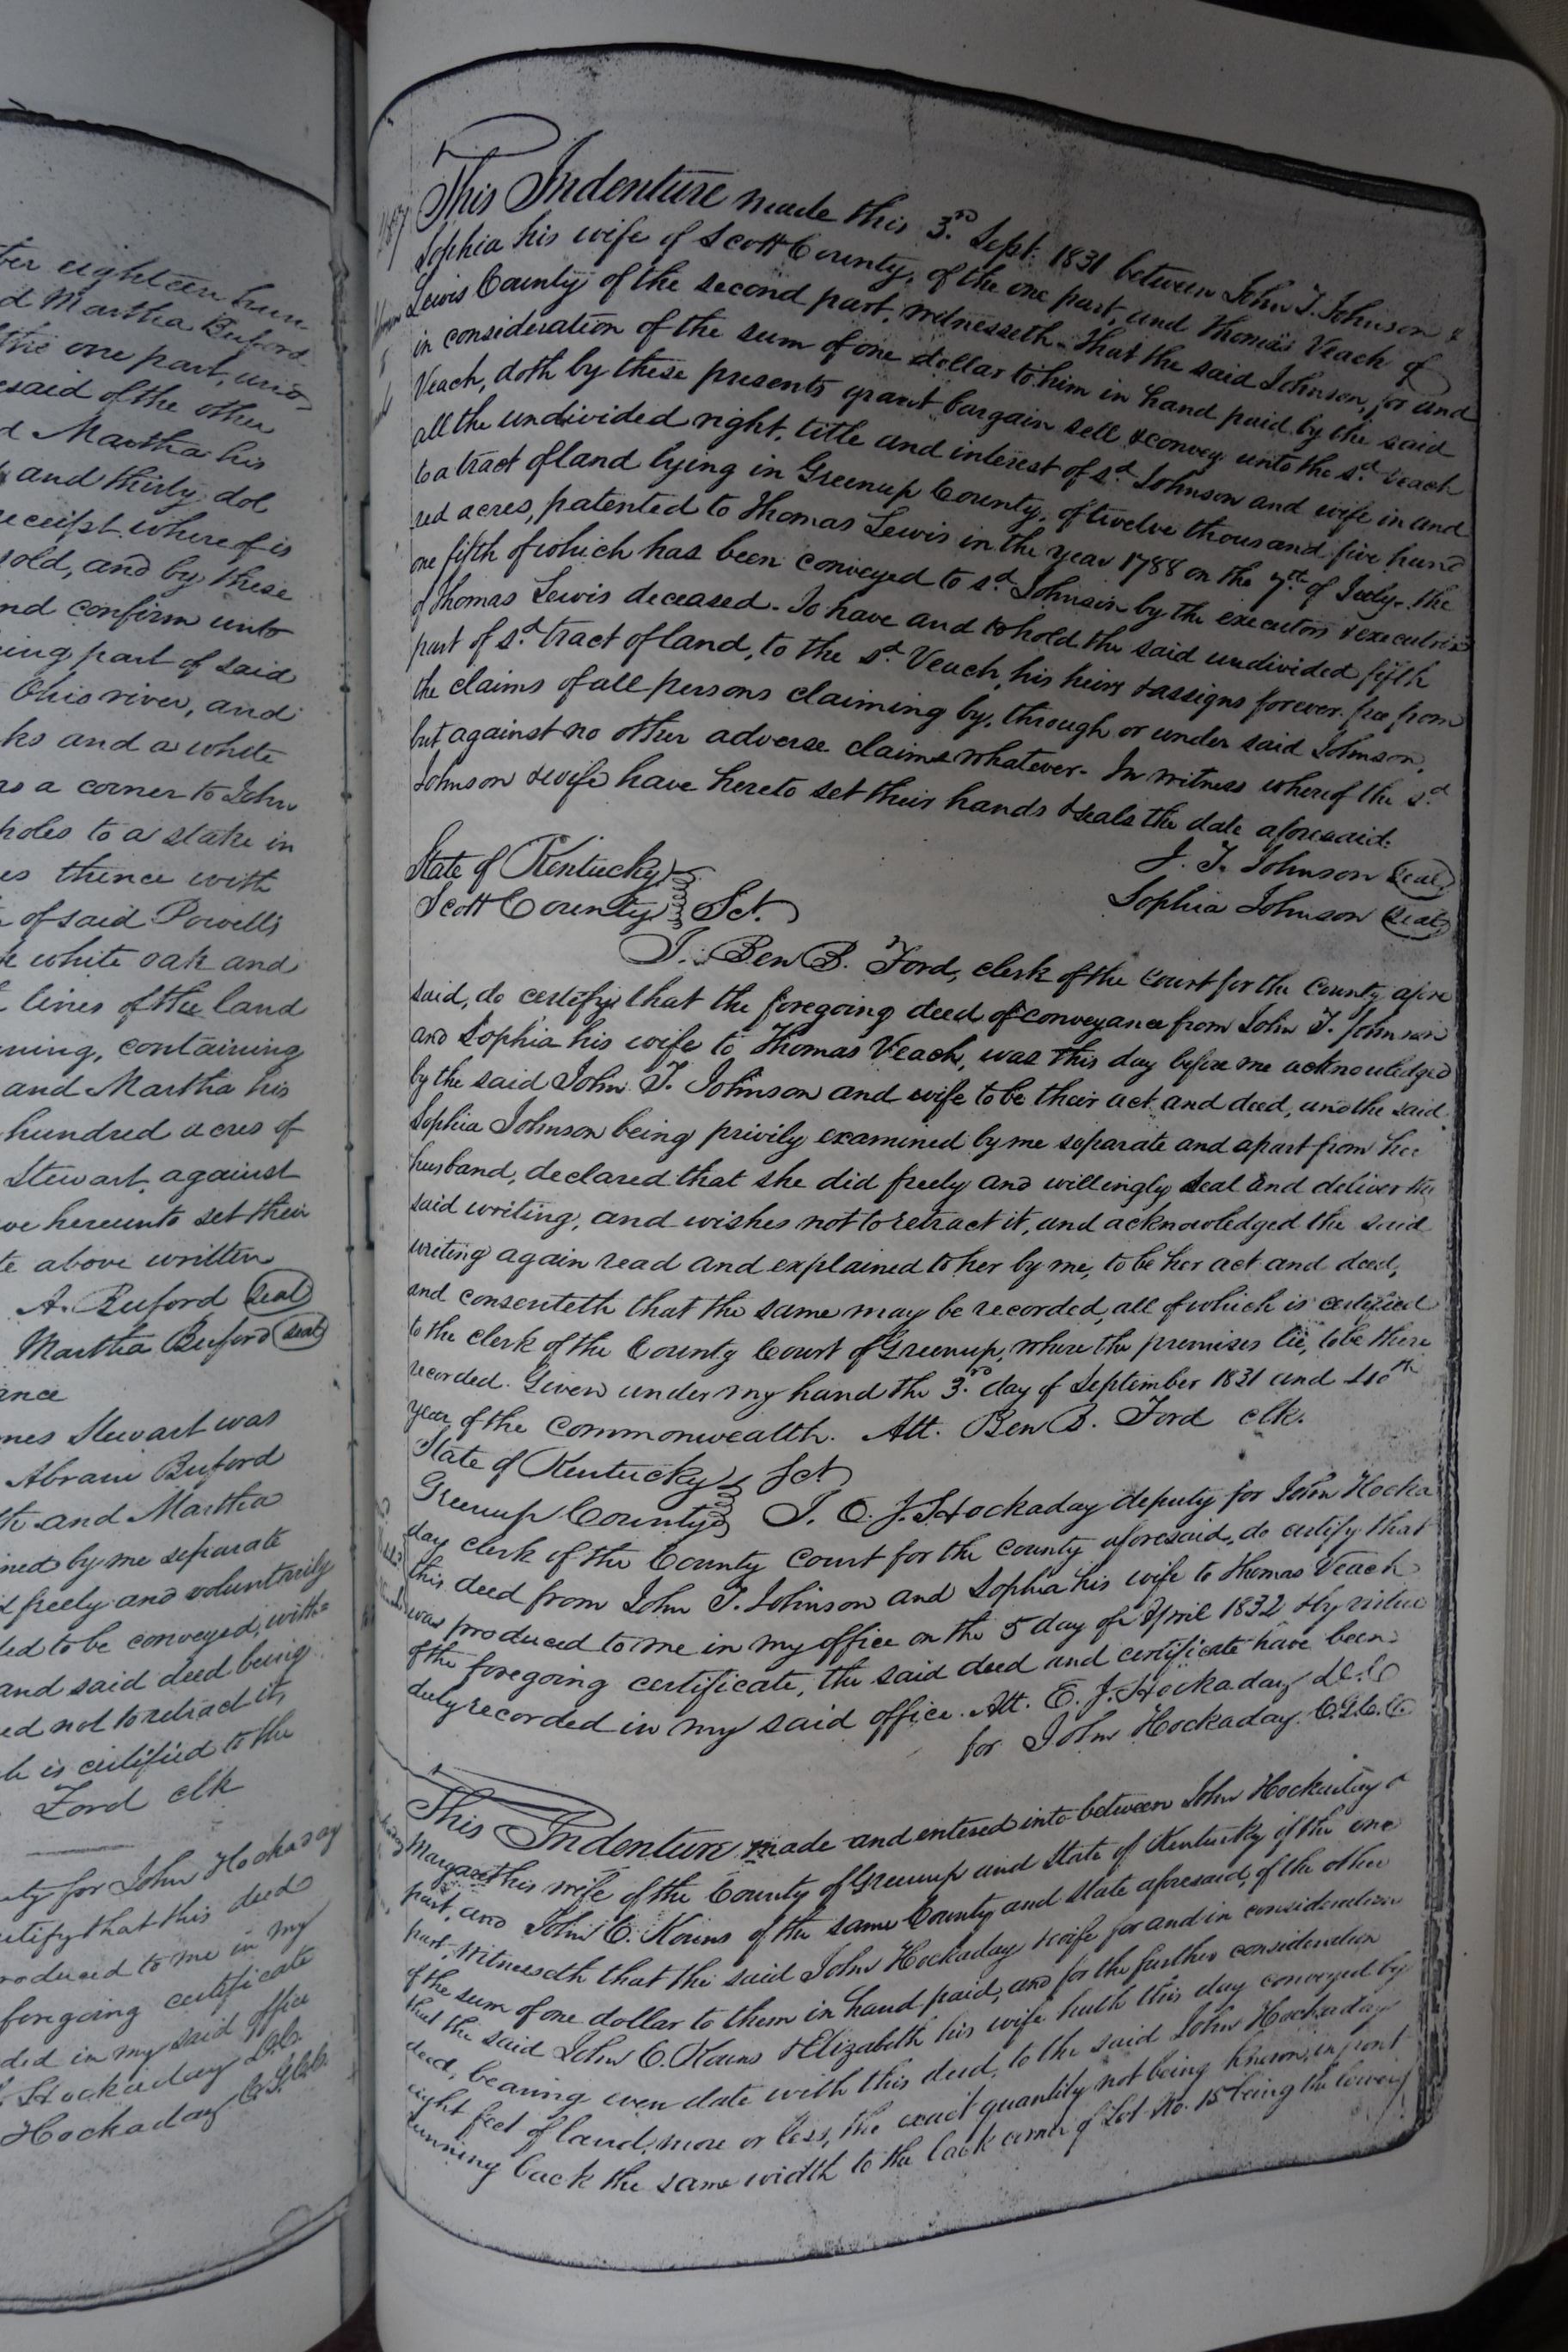 ter eighteen hun
d Martha Buford
the one part, and
esaid of the other
d Martha his
and thirty dol
receipt whereof is
sold, and by these
nd confirm unto
ing part of said
Ohio river, and
ks and a white
rs a corner to John
poles to a stake in
es thence with
of said Powells
white oak and
lines of the land
ning, containing
and Martha his
hundred acres of
Stewart, against
ve hereunto set their
te above written
A. Buford (seal)
Martha Buford (seal)
ance
mes Stewart was
Abram Buford
and Martha
ined by me separate
d freely and voluntarily
ded to be conveyed, with
and said deed being
ed not to retract it,
h is certified to the
Ford clk
uty for John Hockaday
ertify that this deed
roduced to me in my
foregoing certificate
ded in my said office
Hockaday D.C.
Hockaday C.G.C.C.
This Indenture made this 3.rd Sept. 1831 between John T. Johnson &
Sophia his wife of Scott County, of the one part, and Thomas Veach of
Lewis County of the second part, witnesseth. That the said Johnson, for and
in consideration of the sum of one dollar to him in hand paid by the said
Veach, doth by these presents grant bargain sell & convey unto the sd. Veach
all the undivided right, title and interest of sd. Johnson and wife in and
to a tract of land lying in Greenup County, of twelve thousand five hund
red acres, patented to Thomas Lewis in the year 1788 on the 7th of July. the
one fifth of which has been conveyed to sd. Johnson by the executors & executrix
of Thomas Lewis deceased. To have and to hold the said undivided fifth
part of sd. tract of land, to the sd. Veach, his heirs & assigns forever. free from
the claims of all persons claiming by, through or under said Johnson,
but against no other adverse claims whatever. In witness whereof the sd.
Johnson & wife have hereto set their hands & seals the date aforesaid.
J. T. Johnson (Seal)
Sophia Johnson (Seal)
State of Kentucky
Scott County Sct.
I. Ben B. Ford, clerk of the Court for the County afore
said, do certify that the foregoing deed of conveyance from John T. Johnson
and Sophia his wife to Thomas Veach, was this day before me acknowledged
by the said John T. Johnson and wife to be their act and deed, and the said
Sophia Johnson being privily examined by me separate and apart from her
husband, declared that she did freely and willingly seal and deliver the
said writing, and wishes not to retract it, and acknowledged the said
writing again read and explained to her by me, to be her act and deed,
and consenteth that the same may be recorded, all of which is certified
to the clerk of the County Court of Greenup, where the premises lie, to be there
recorded. Given under my hand the 3.rd day of September 1831 and 40th
year of the commonwealth. Att. Ben B. Ford clk.
State of Kentucky Sct
Greenup County I. E. J. Hockaday deputy for John Hocka
day clerk of the County Court for the County aforesaid, do certify that
this deed from John T. Johnson and Sophia his wife to Thomas Veach
was produced to me in my office on the 5 day of April 1832 & by virtue
of the foregoing certificate, the said deed and certificate have been
duly recorded in my said office. Att. E. J. Hockaday D.C.
for John Hockaday C.G.C.C.
This Indenture made and entered into between John Hockaday &
Margaret his wife of the County of Greenup and State of Kentucky of the one
part, and John C. Kouns of the same County and state aforesaid, of the other
part, Witnesseth that the said John Hockaday & wife for and in consideration
of the sum of one dollar to them in hand paid, and for the further consideration
that the said John C. Kouns & Elizabeth his wife hath this day conveyed by
deed, bearing even date with this deed, to the said John Hockaday
eight feet of land, more or less, the exact quantity not being known, in front
running back the same width to the back corner of Lot No. 15 being the lower